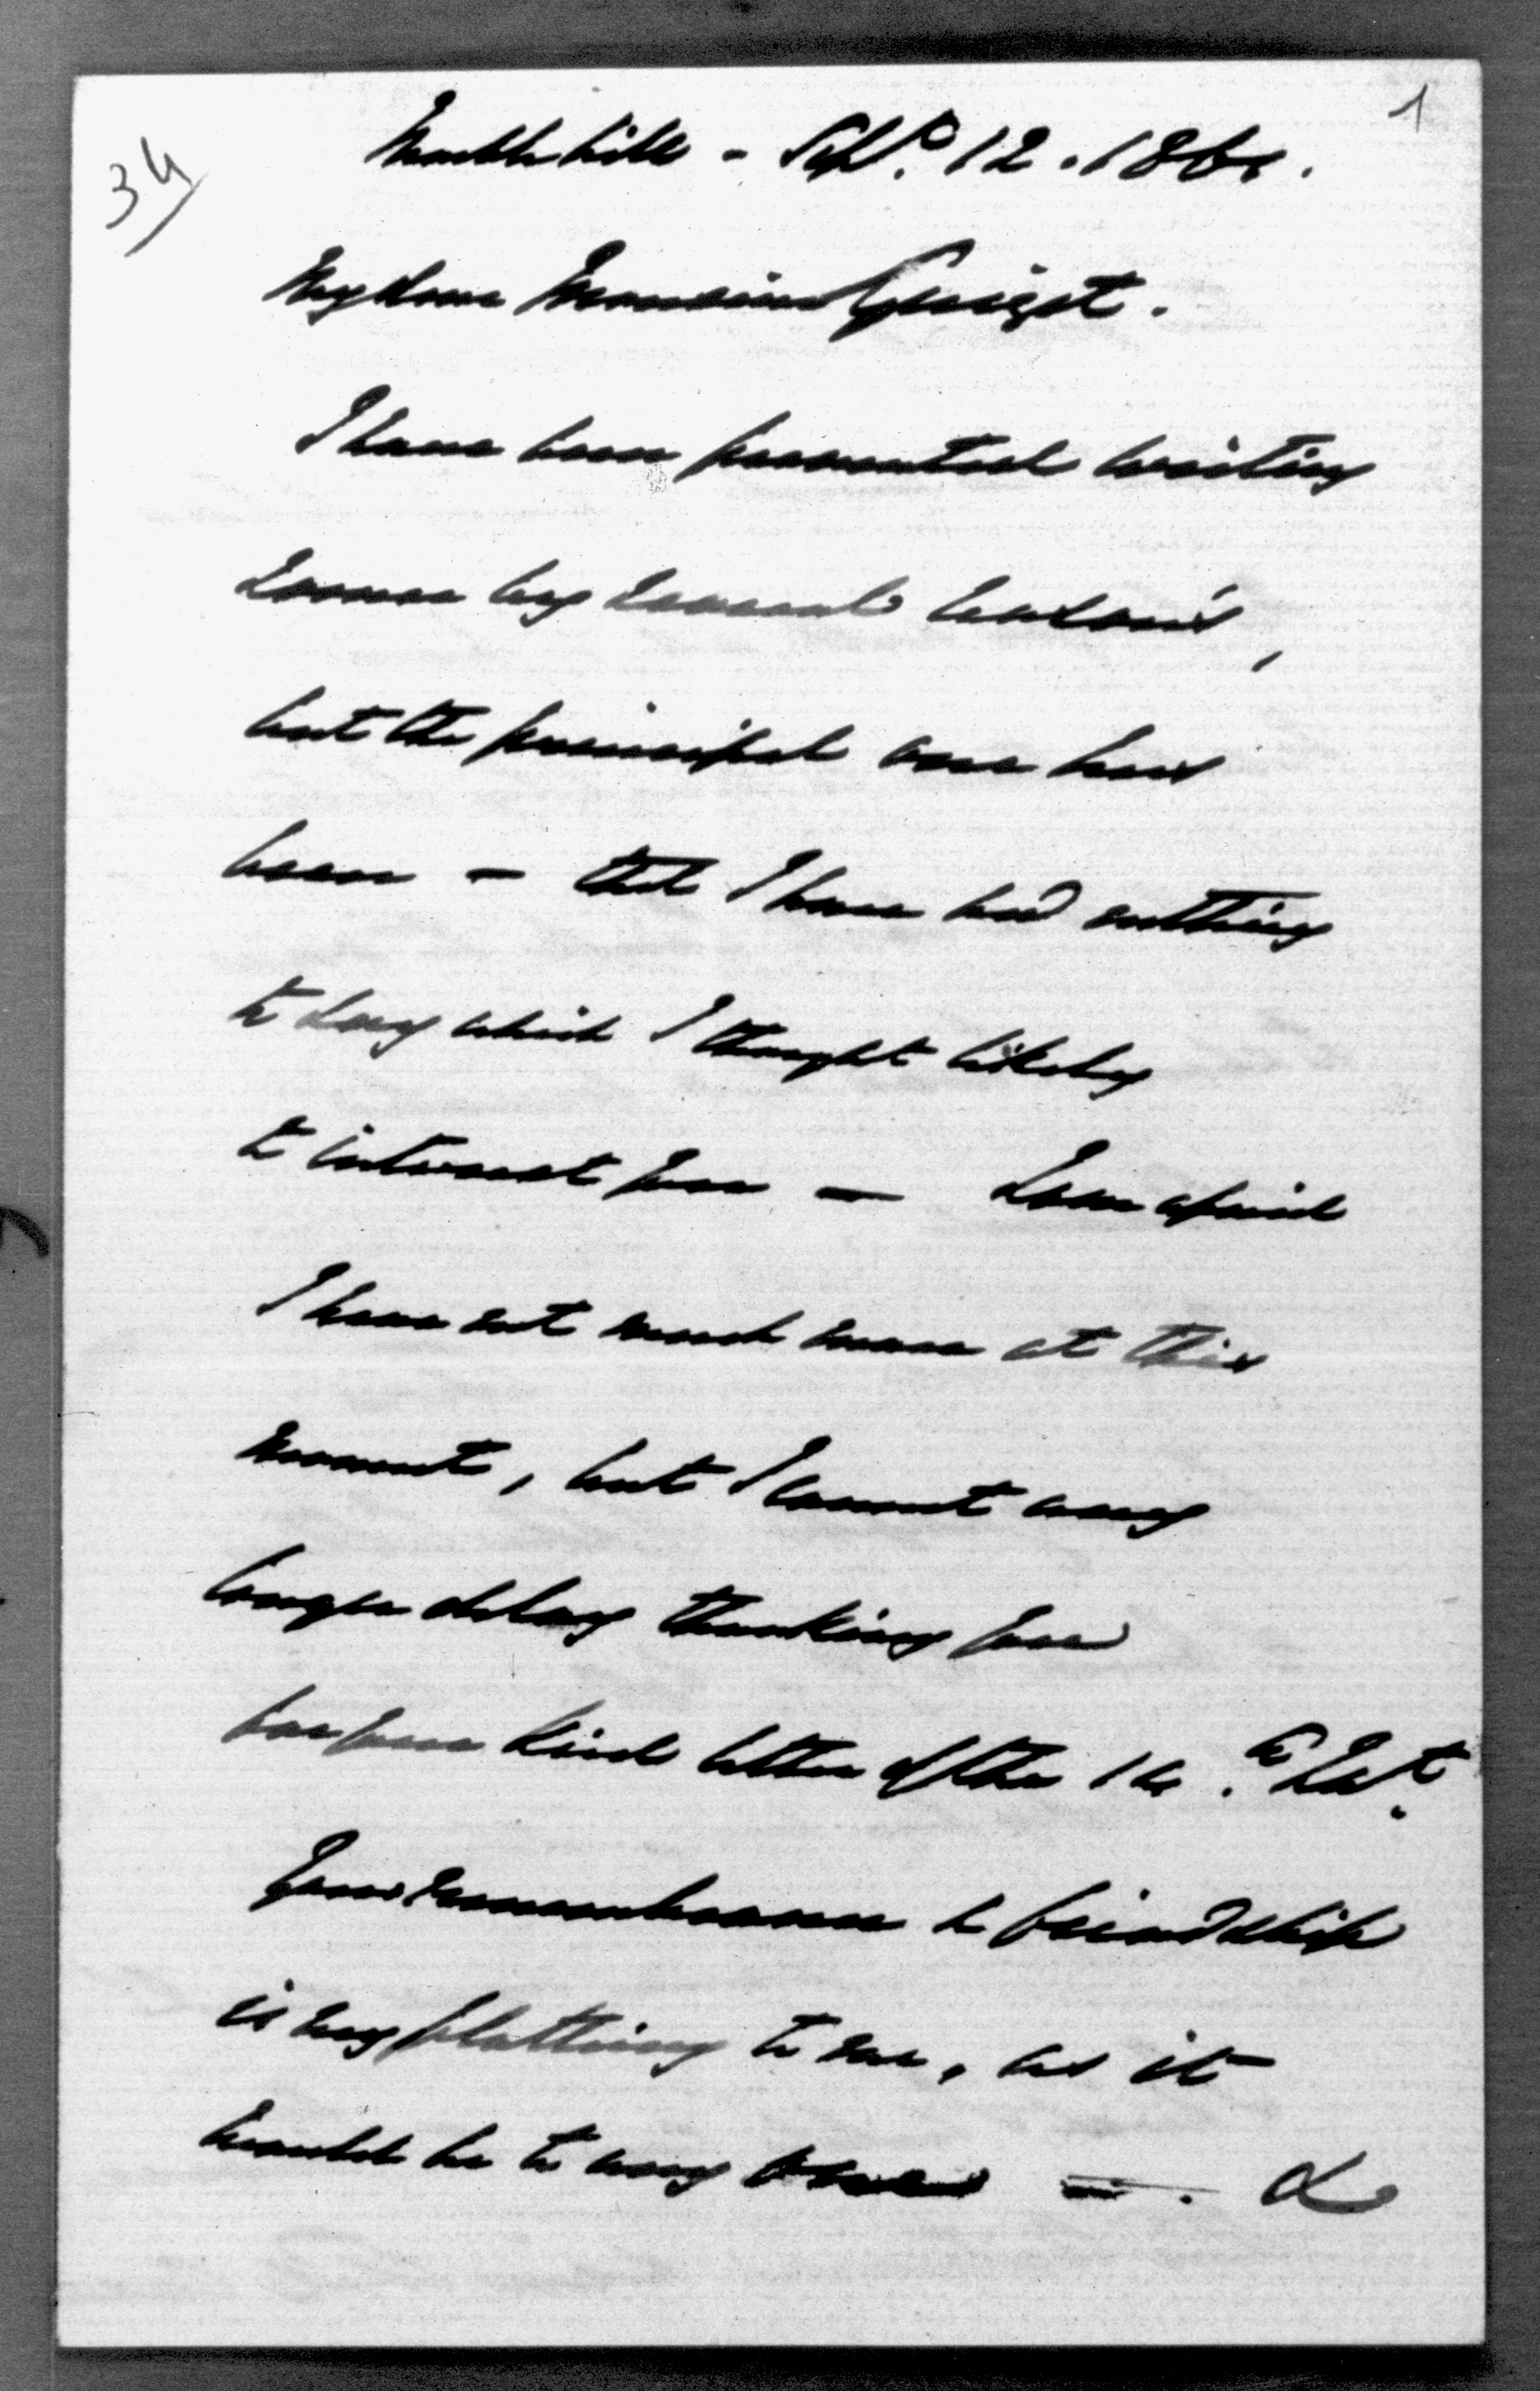 1
34
Sept. 12. 1861.
My dear Monsieur Guizot.
I have been prevented writing
sooner by several
but the principal one has
been — that I have had nothing
to say which I thought likely
to interest you — I am afraid
I have not much more at this
moment, but I cannot any
longer delay thanking you
for your kind letter of the 14th
Your remembrance & friendship
is very flattering to me, as it
would be to any